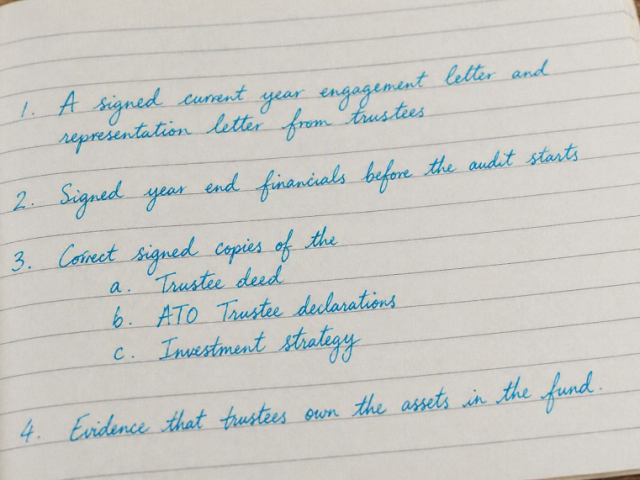 1. A signed current year engagement letter and
representation letter from trustees
2. Signed year end financials before the audit starts
3. Correct signed copies of the
a. Trustee deed
b. ATO Trustee declarations
c. Investment strategy
4. Evidence that trustees own the assets in the fund.